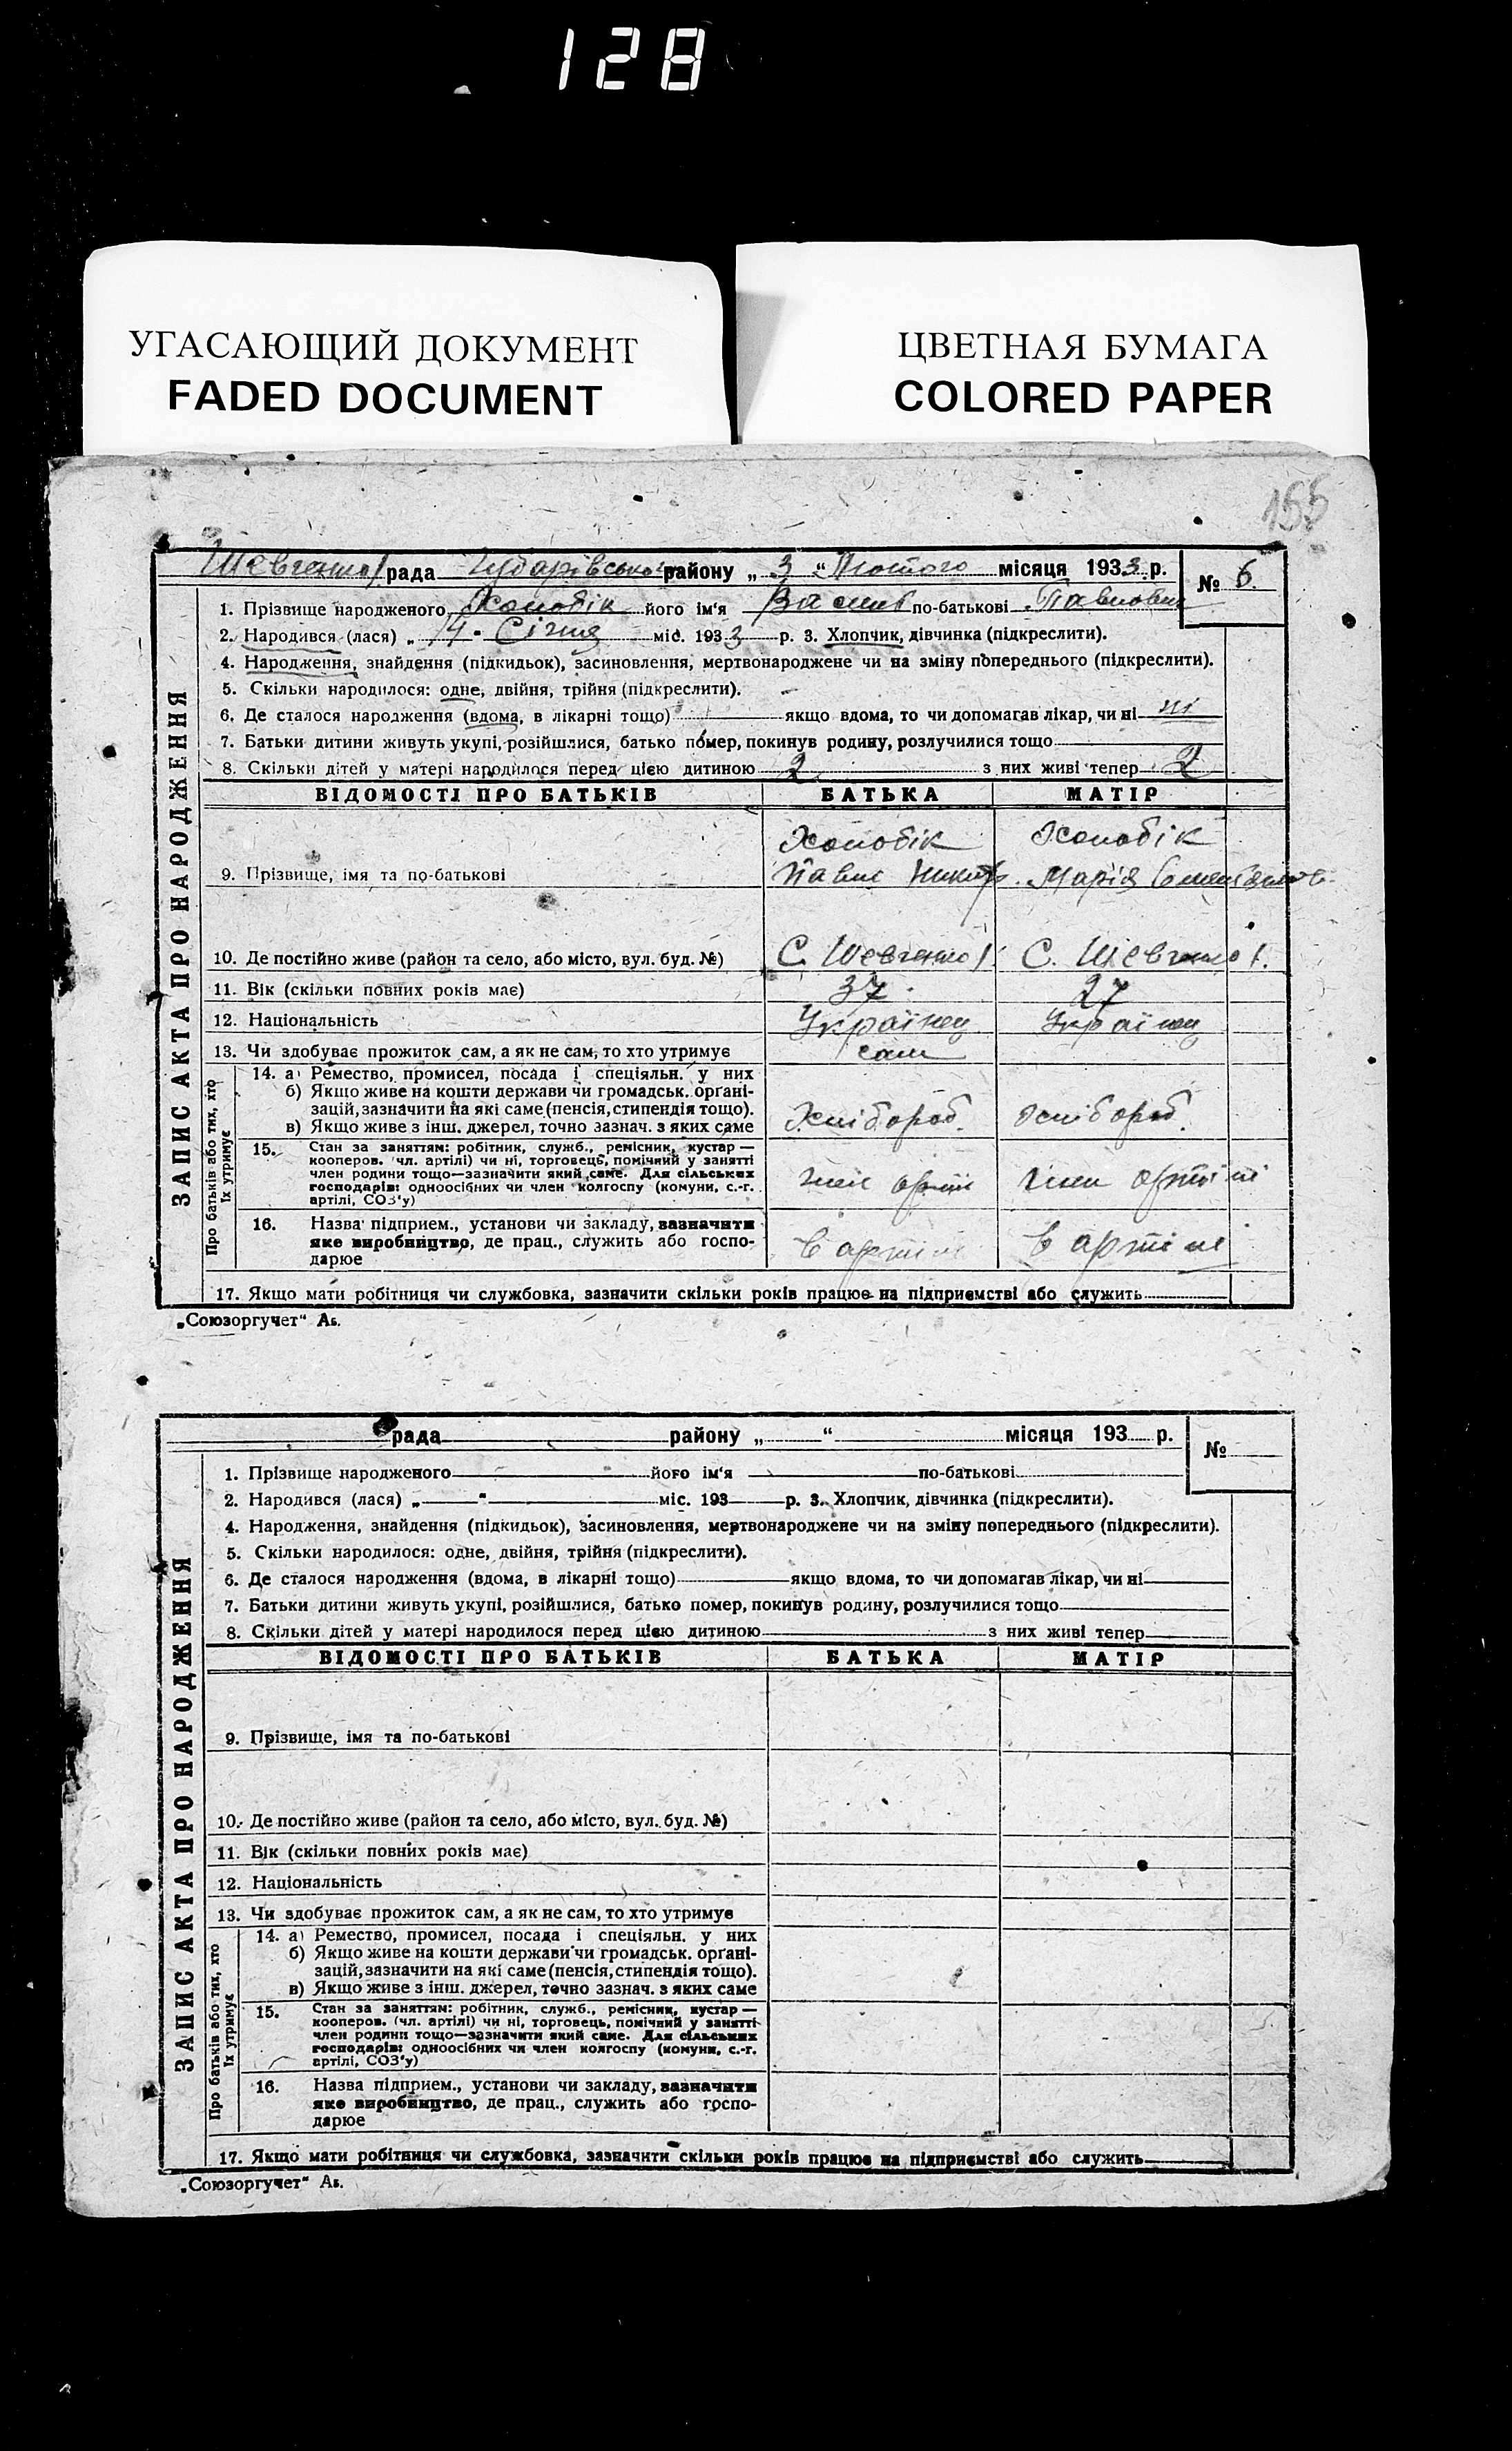 128
УГАСАЮЩИЙ ДОКУМЕНТ
FADED DOCUMENT
ЦВЕТНАЯ БУМАГА
COLORED PAPER
155
Шевченко І рада Чубарівського району „ 3 “ Лютого місяця 1933 р. № 6.
ЗАПИС АКТА ПРО НАРОДЖЕННЯ
1. Прізвище народженого його ім'я Василь по-батькові Павлович
2. Народився (лася) „ 14 " Січня міс. 1933 р. 3. Хлопчик, дівчинка (підкреслити).
4. Народження, знайдення (підкидьок), засиновлення, мертвонароджене чи на зміну попереднього (підкреслити).
5. Скільки народилося: одне, двійня, трійня (підкреслити).
6. Де сталося народження (вдома, в лікарні тощо) якщо вдома, то чи допомагав лікар, чи ні ні
7. Батьки дитини живуть укупі, розійшлися, батько помер, покинув родину, розлучилися тощо
8. Скільки дітей у матері народилося перед цією дитиною 2 з них живі тепер 2
ВІДОМОСТІ ПРО БАТЬКІВ БАТЬКА МАТІР
9. Прізвище, імя та по-батькові Павло Никиф. Марія
10. Де постійно живе (район та село, або місто, вул. буд. №) С. Шевченко І. С. Шевченко І.
11. Вік (скільки повних років має) 37. 27
12. Національність Українец Українец
13. Чи здобуває прожиток сам, а як не сам, то хто утримує сам
Про батьків або тих, хто їх утримує
14. а) Ремество, промисел, посада і спеціяльн. у них
б) Якщо живе на кошти держави чи громадськ. орґані-
зацій, зазначити на які саме (пенсія, стипендія тощо).
в) Якщо живе з інш. джерел, точно зазнач. з яких саме Хлібороб. Хлібороб.
15. Стан за заняттям: робітник, служб., ремісник, кустар —
кооперов. (чл. артілі) чи ні, торговець, помічний у занятті
член родини тощо—зазначити який саме. Для сільських
господарів: одноосібних чи член колгоспу (комуни, с.-г.
артілі, СОЗ'у) член артілі член артілі
16. Назва підприєм., установи чи закладу, зазначити
яке виробництво, де прац., служить або госпо-
дарює в артілі в артілі
17. Якщо мати робітниця чи службовка, зазначити скільки років працює на підприємстві або служить
„Союзоргучет“ Аб.
рада району „ “ місяця 193 р. №
ЗАПИС АКТА ПРО НАРОДЖЕННЯ
1. Прізвище народженого його ім'я по-батькові
2. Народився (лася) „ " міс. 193 р. 3. Хлопчик, дівчинка (підкреслити).
4. Народження, знайдення (підкидьок), засиновлення, мертвонароджене чи на зміну попереднього (підкреслити).
5. Скільки народилося: одне, двійня, трійня (підкреслити).
6. Де сталося народження (вдома, в лікарні тощо) якщо вдома, то чи допомагав лікар, чи ні
7. Батьки дитини живуть укупі, розійшлися, батько помер, покинув родину, розлучилися тощо
8. Скільки дітей у матері народилося перед цією дитиною з них живі тепер
ВІДОМОСТІ ПРО БАТЬКІВ БАТЬКА МАТІР
9. Прізвище, імя та по-батькові
10. Де постійно живе (район та село, або місто, вул. буд. №)
11. Вік (скільки повних років має)
12. Національність
13. Чи здобуває прожиток сам, а як не сам, то хто утримує
Про батьків або тих, хто їх утримує
14. а) Ремество, промисел, посада і спеціяльн. у них
б) Якщо живе на кошти держави чи громадськ. орґані-
зацій, зазначити на які саме (пенсія, стипендія тощо).
в) Якщо живе з інш. джерел, точно зазнач. з яких саме
15. Стан за заняттям: робітник, служб., ремісник, кустар —
кооперов. (чл. артілі) чи ні, торговець, помічний у занятті
член родини тощо—зазначити який саме. Для сільських
господарів: одноосібних чи член колгоспу (комуни, с.-г.
артілі, СОЗ'у)
16. Назва підприєм., установи чи закладу, зазначити
яке виробництво, де прац., служить або госпо-
дарює
17. Якщо мати робітниця чи службовка, зазначити скільки років працює на підприємстві або служить
„Союзоргучет“ Аб.